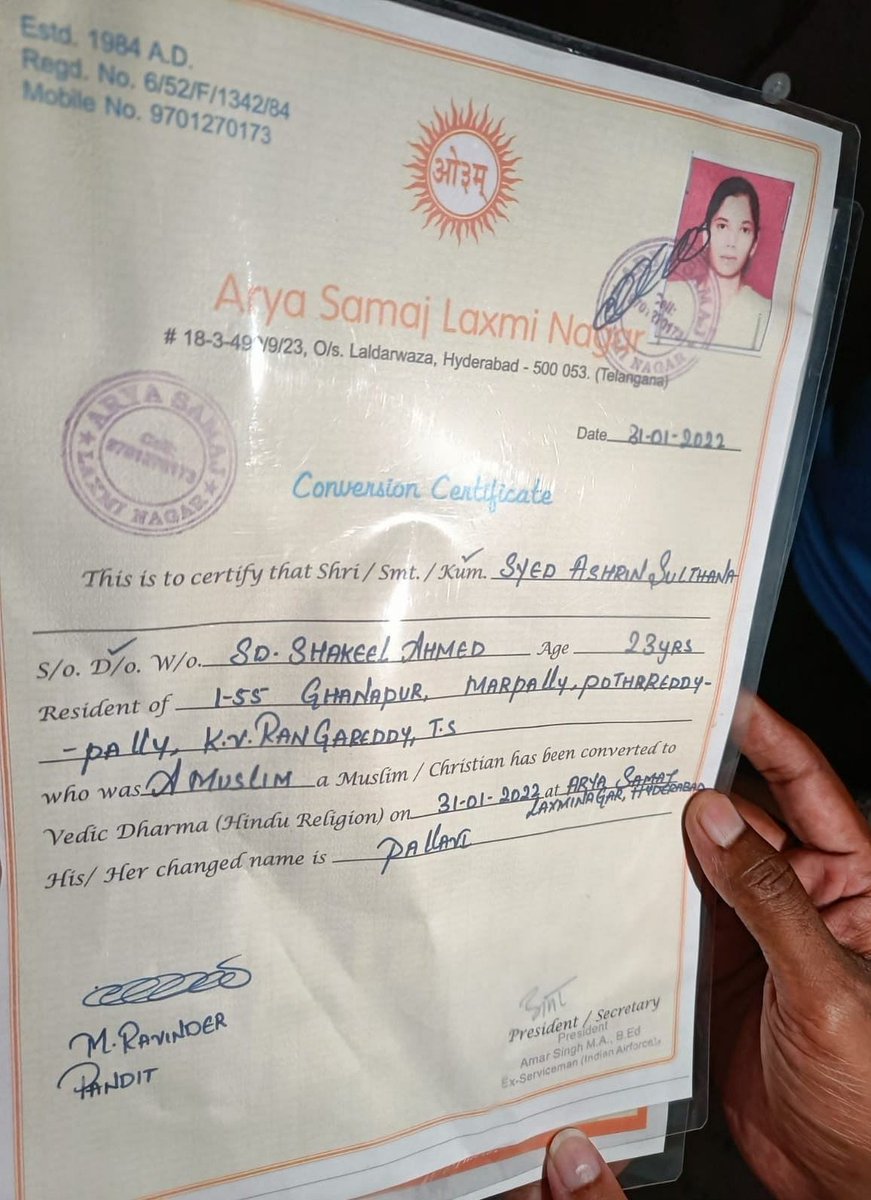 Estd. 1984 A.D.
Regd. No. 6/52/F/1342/84
Mobile No. 9701270173
ओ३म्
Arya Samaj Laxmi Nagar
# 18-3-49 /9/23, O/s. Laldarwaza, Hyderabad - 500 053. (Telangana)
ARYA SAMAJ
Cell:
9701270173
LAXMI NAGAR
Date 31-01-2022
Conversion Certificate
This is to certify that Shri / Smt. / Kum. SYED ASHRIN SULTHANA
S/o. D/o. W/o. SD. SHAKEEL AHMED Age 23 YRS
Resident of 1-55 GHANAPUR, MARPALLY, POTHRREDDY-
-PALLY, K.V. RANGAREDDY, T.S
who was A MUSLIM a Muslim / Christian has been converted to
Vedic Dharma (Hindu Religion) on 31-01-2022 at ARYA SAMAJ
LAXMINAGAR, HYDERABAD
His/ Her changed name is PALLAVI
M. RAVINDER
PANDIT
President / Secretary
President
Amar Singh M.A., B.Ed
Ex-Serviceman (Indian Airforce)